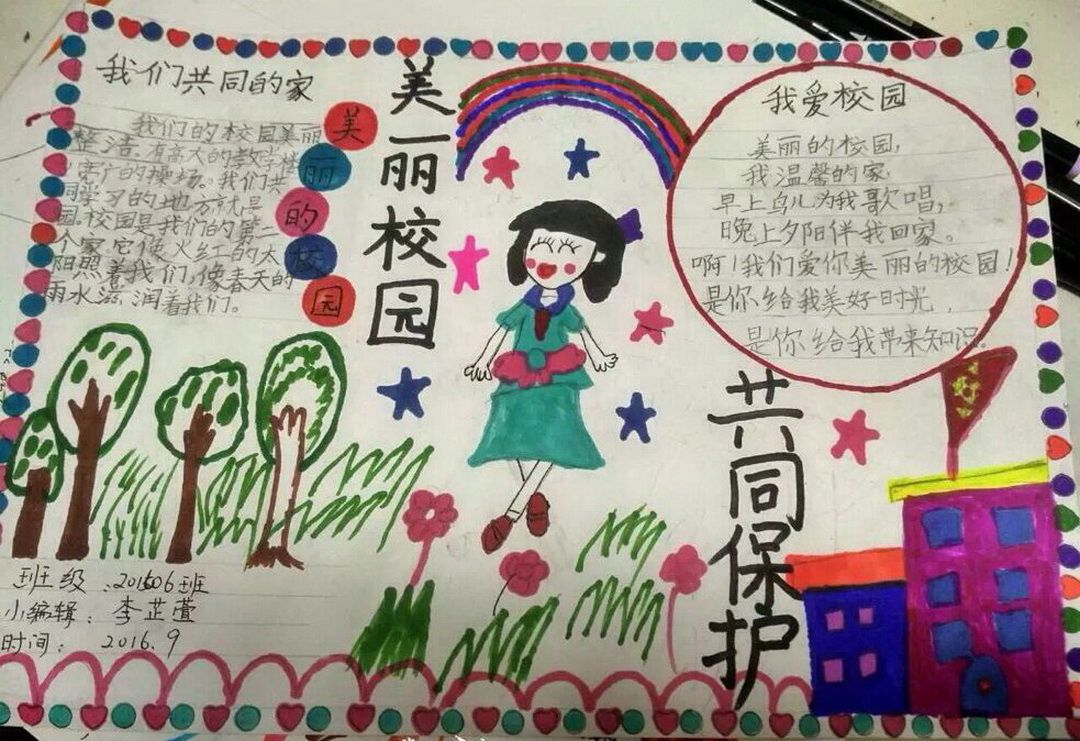 我们共同的家
我们的校园美丽
整洁。有高大的教学楼
宽广的操场。我们共
同学习的地方就是
园。校园是我们的第二
个家,它像火红的太
阳照着我们,像春天的
雨水滋润着我们。
美
丽
的
校
园
美丽校园
我爱校园
美丽的校园,
我温馨的家,
早上鸟儿为我歌唱,
晚上夕阳伴我回家。
啊!我们爱你美丽的校园!
是你给我美好时光,
是你给我带来知识。
共同保护
班级:201506班
小编辑:李芷萱
时间:2016.9